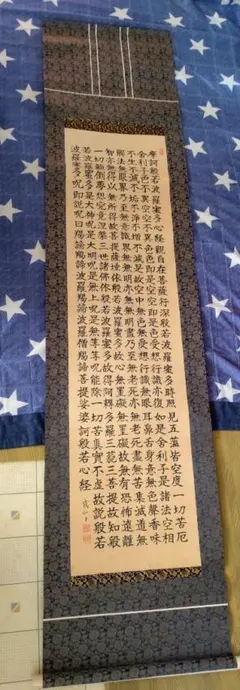 摩訶般若波羅蜜多心經觀自在菩薩行深般若波羅蜜多時照見五蘊皆空度一切苦厄
舍利子色不異空空不異色色即是空空即是色受想行識亦復如是舍利子是諸法空相
不生不滅不垢不淨不增不減是故空中無色無受想行識無眼耳鼻舌身意無色聲香味
觸法無眼界乃至無意識界無無明亦無無明盡乃至無老死亦無老死盡無苦集滅道無
智亦無得以無所得故菩提薩埵依般若波羅蜜多故心無罣礙無罣礙故無有恐怖遠離
一切顛倒夢想究竟涅槃三世諸佛依般若波羅蜜多故得阿耨多羅三藐三菩提故知般
若波羅蜜多是大神呪是大明呪是無上呪是無等等呪能除一切苦真實不虛故說般若
波羅蜜多呪即說呪曰羯諦羯諦波羅羯諦波羅僧羯諦菩提娑婆訶般若心經